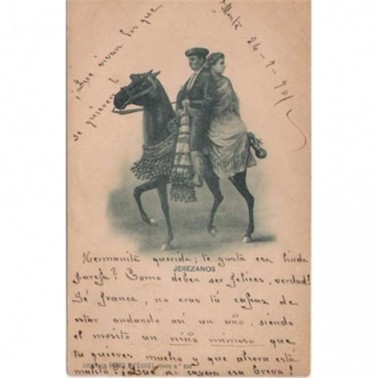 ¡Que vivan los que
se quieren!
26-9-901
JEREZANOS
Hermanita querida; te gusta esa linda
pareja? Como deben ser felices, verdad?
Sé franca, no eras tú capaz de
estar andando así un año, siendo
el mosito un niño mimoso que
tu quieres mucho y que ahora está
malito? ¡Que la cayera esa breva!